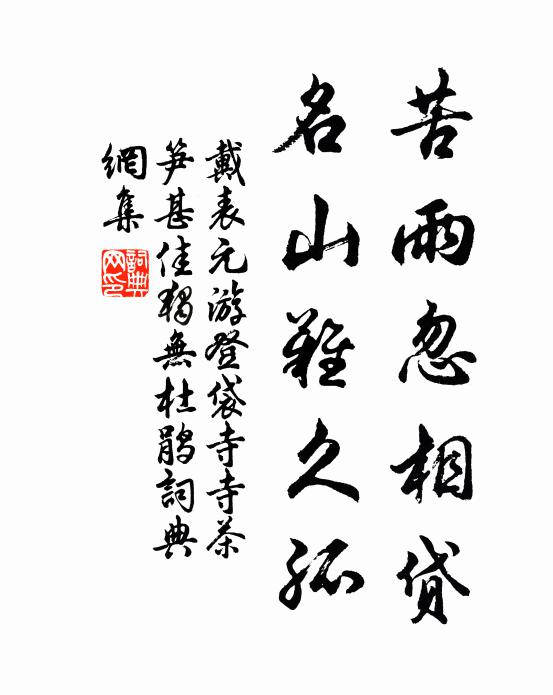 苦雨忽相貸
名山難久孤
戴表元游登袋寺寺茶
笋甚佳獨無杜鹃詞典
網集
詞典网印